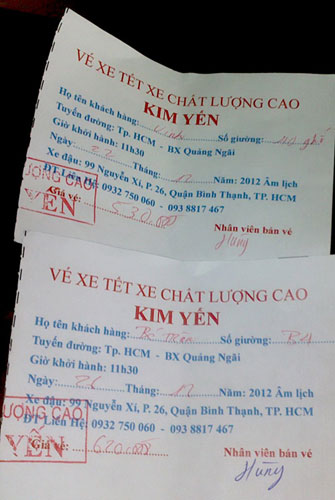 VÉ XE TẾT XE CHẤT LƯỢNG CAO
KIM YẾN
Họ tên khách hàng: Vinh
Số giường: 40 ghế
Tuyến đường: Tp. HCM - BX Quảng Ngãi
Giờ khởi hành: 11h30
Ngày: 22 Tháng: 12 Năm: 2012 Âm lịch
Xe đậu: 99 Nguyễn Xí, P. 26, Quận Bình Thạnh, TP. HCM
ĐT Liên Hệ: 0932 750 060 - 093 8817 467
Giá vé: 530.000
Nhân viên bán vé
Hùng
ƯỢNG CAO
YẾN
VÉ XE TẾT XE CHẤT LƯỢNG CAO
KIM YẾN
Họ tên khách hàng: Trân Số giường:
Tuyến đường: Tp. HCM - BX Quảng Ngãi
Giờ khởi hành: 11h30
Ngày: 26 Tháng: 12 Năm: 2012 Âm lịch
Xe đậu: 99 Nguyễn Xí, P. 26, Quận Bình Thạnh, TP. HCM
ĐT Liên Hệ: 0932 750 060 - 093 8817 467
Giá vé: 620.000
Nhân viên bán vé
Hùng
ƯỢNG CAO
YẾN